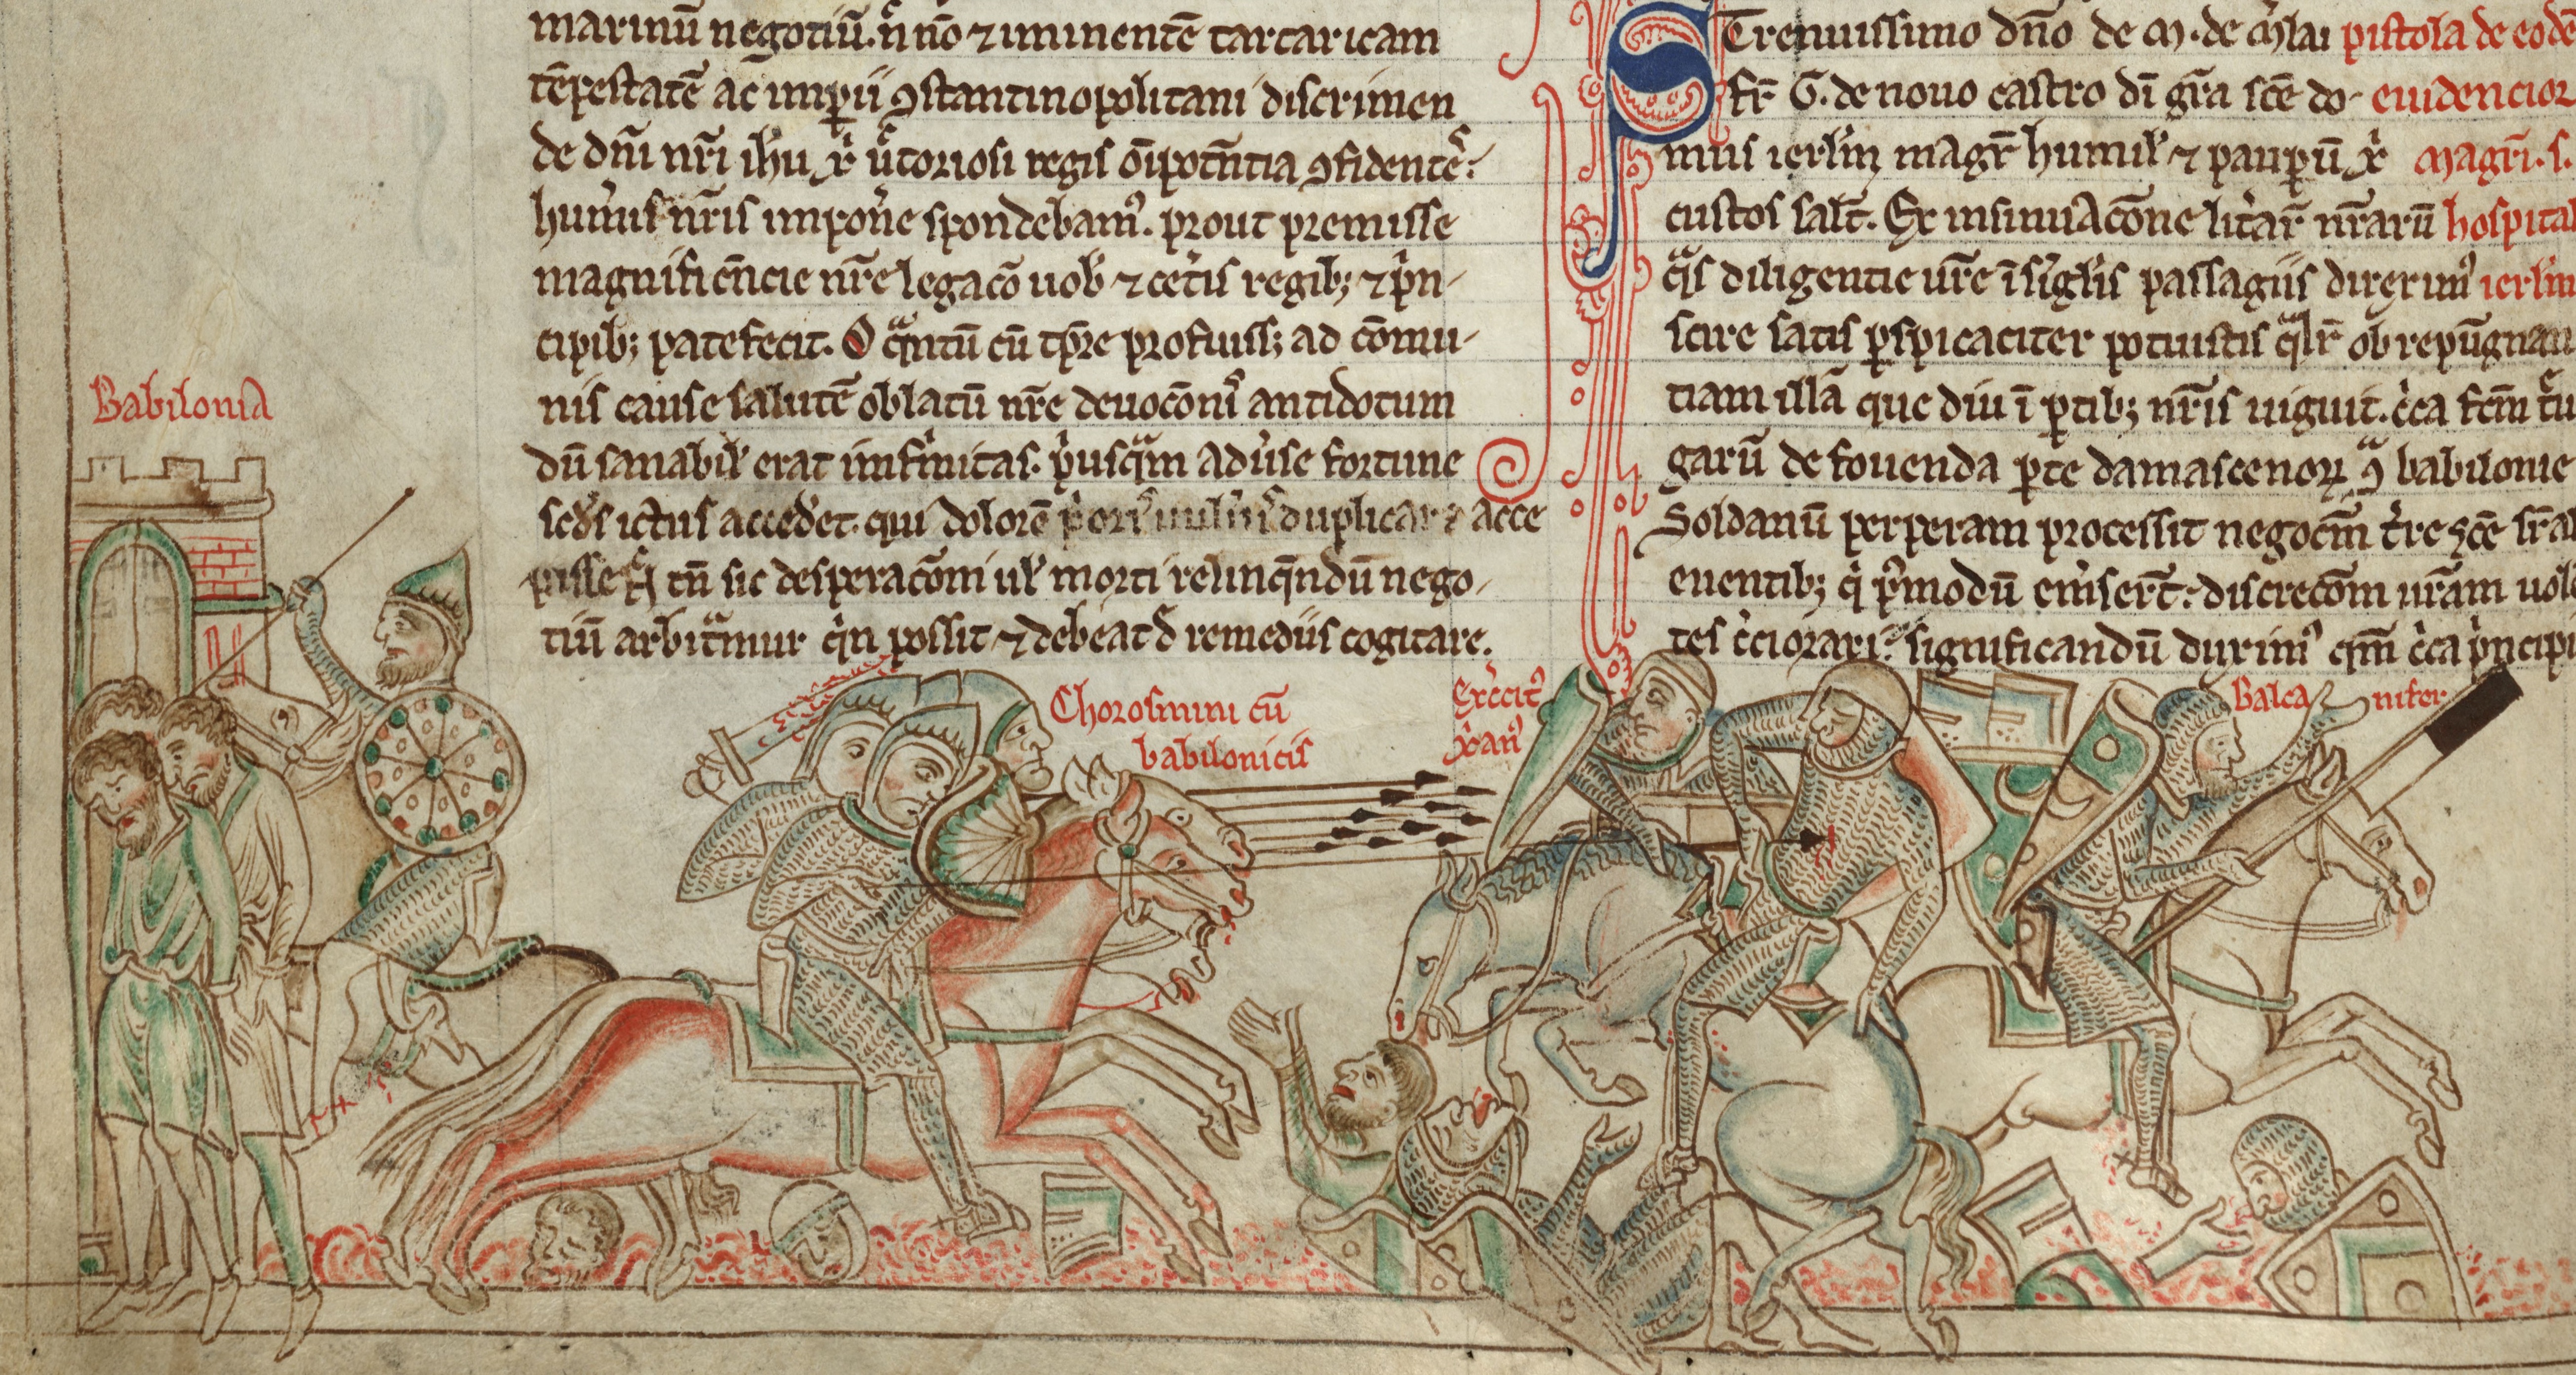 marinū negotiū. ñ nō ⁊ iminentē tartaricam
tēpestatē ac impii ꝯstantinopolitani discrimen
de dn̄i nr̄i ihu xp̄i uictoriosi regis oīpotn̄tia ꝯfidentes
hum̄is nr̄is impon̄e spondebam᾽. prout premisse
magnificēcie nr̄e legacō uob ⁊ cet̄is regib; ⁊ p̄n-
cipib; patefecit. O qͣntū cū tp̄re profuiss; ad cōmu-
nis cause salutē oblatū nr̄e deuocōnis antidotum
dū sanabił erat infirmitas. p̓usqͣm adūse fortune
scd̄s ictus accedet. qui dolorē duplicar acce
pisse tn̄ sic desperacōni uł morti relinqn̄dū nego-
tiū arbitͣmur qn̓ possit ⁊ debeat d̄ remediis cogitare.
STrenuissimo dn̄o de M. de M̄lai pistola de eodē
fr̄ G. de nouo castro dī gr̄a scē do- euidencior
mus ierl̄m magr̄ humił ⁊ paupū xp̄i magr̄i. s.
custos salt̄. Ex insinuacōne lit̄ar̄ nr̄arū hospital
qͣs diligentie ur̄e ī siglis passagiis direxim᾽ ierl̄m
scire satis pspicaciter potuistis qͣlr̄ ob repūgnan
tiam illā que diu ī ptib; nr̄is uiguit. c̓ca fcm̄ tͬu
garū de fouenda pte damascenoꝝ ꝯͣ babilonie
Soldanū perperam processit negocm̄ t̄re scē
euentib; q̓ p̄modū em̄sert̄. discrecōm ur̄am uolē
tes c̓ciorari. significandū duxim᾽ qm̄ c̓ca p̓ncipi
Babilonia
Chorosmini cū
babilonicis
Exercit᾽
xp̄an᾽
Balca nifer